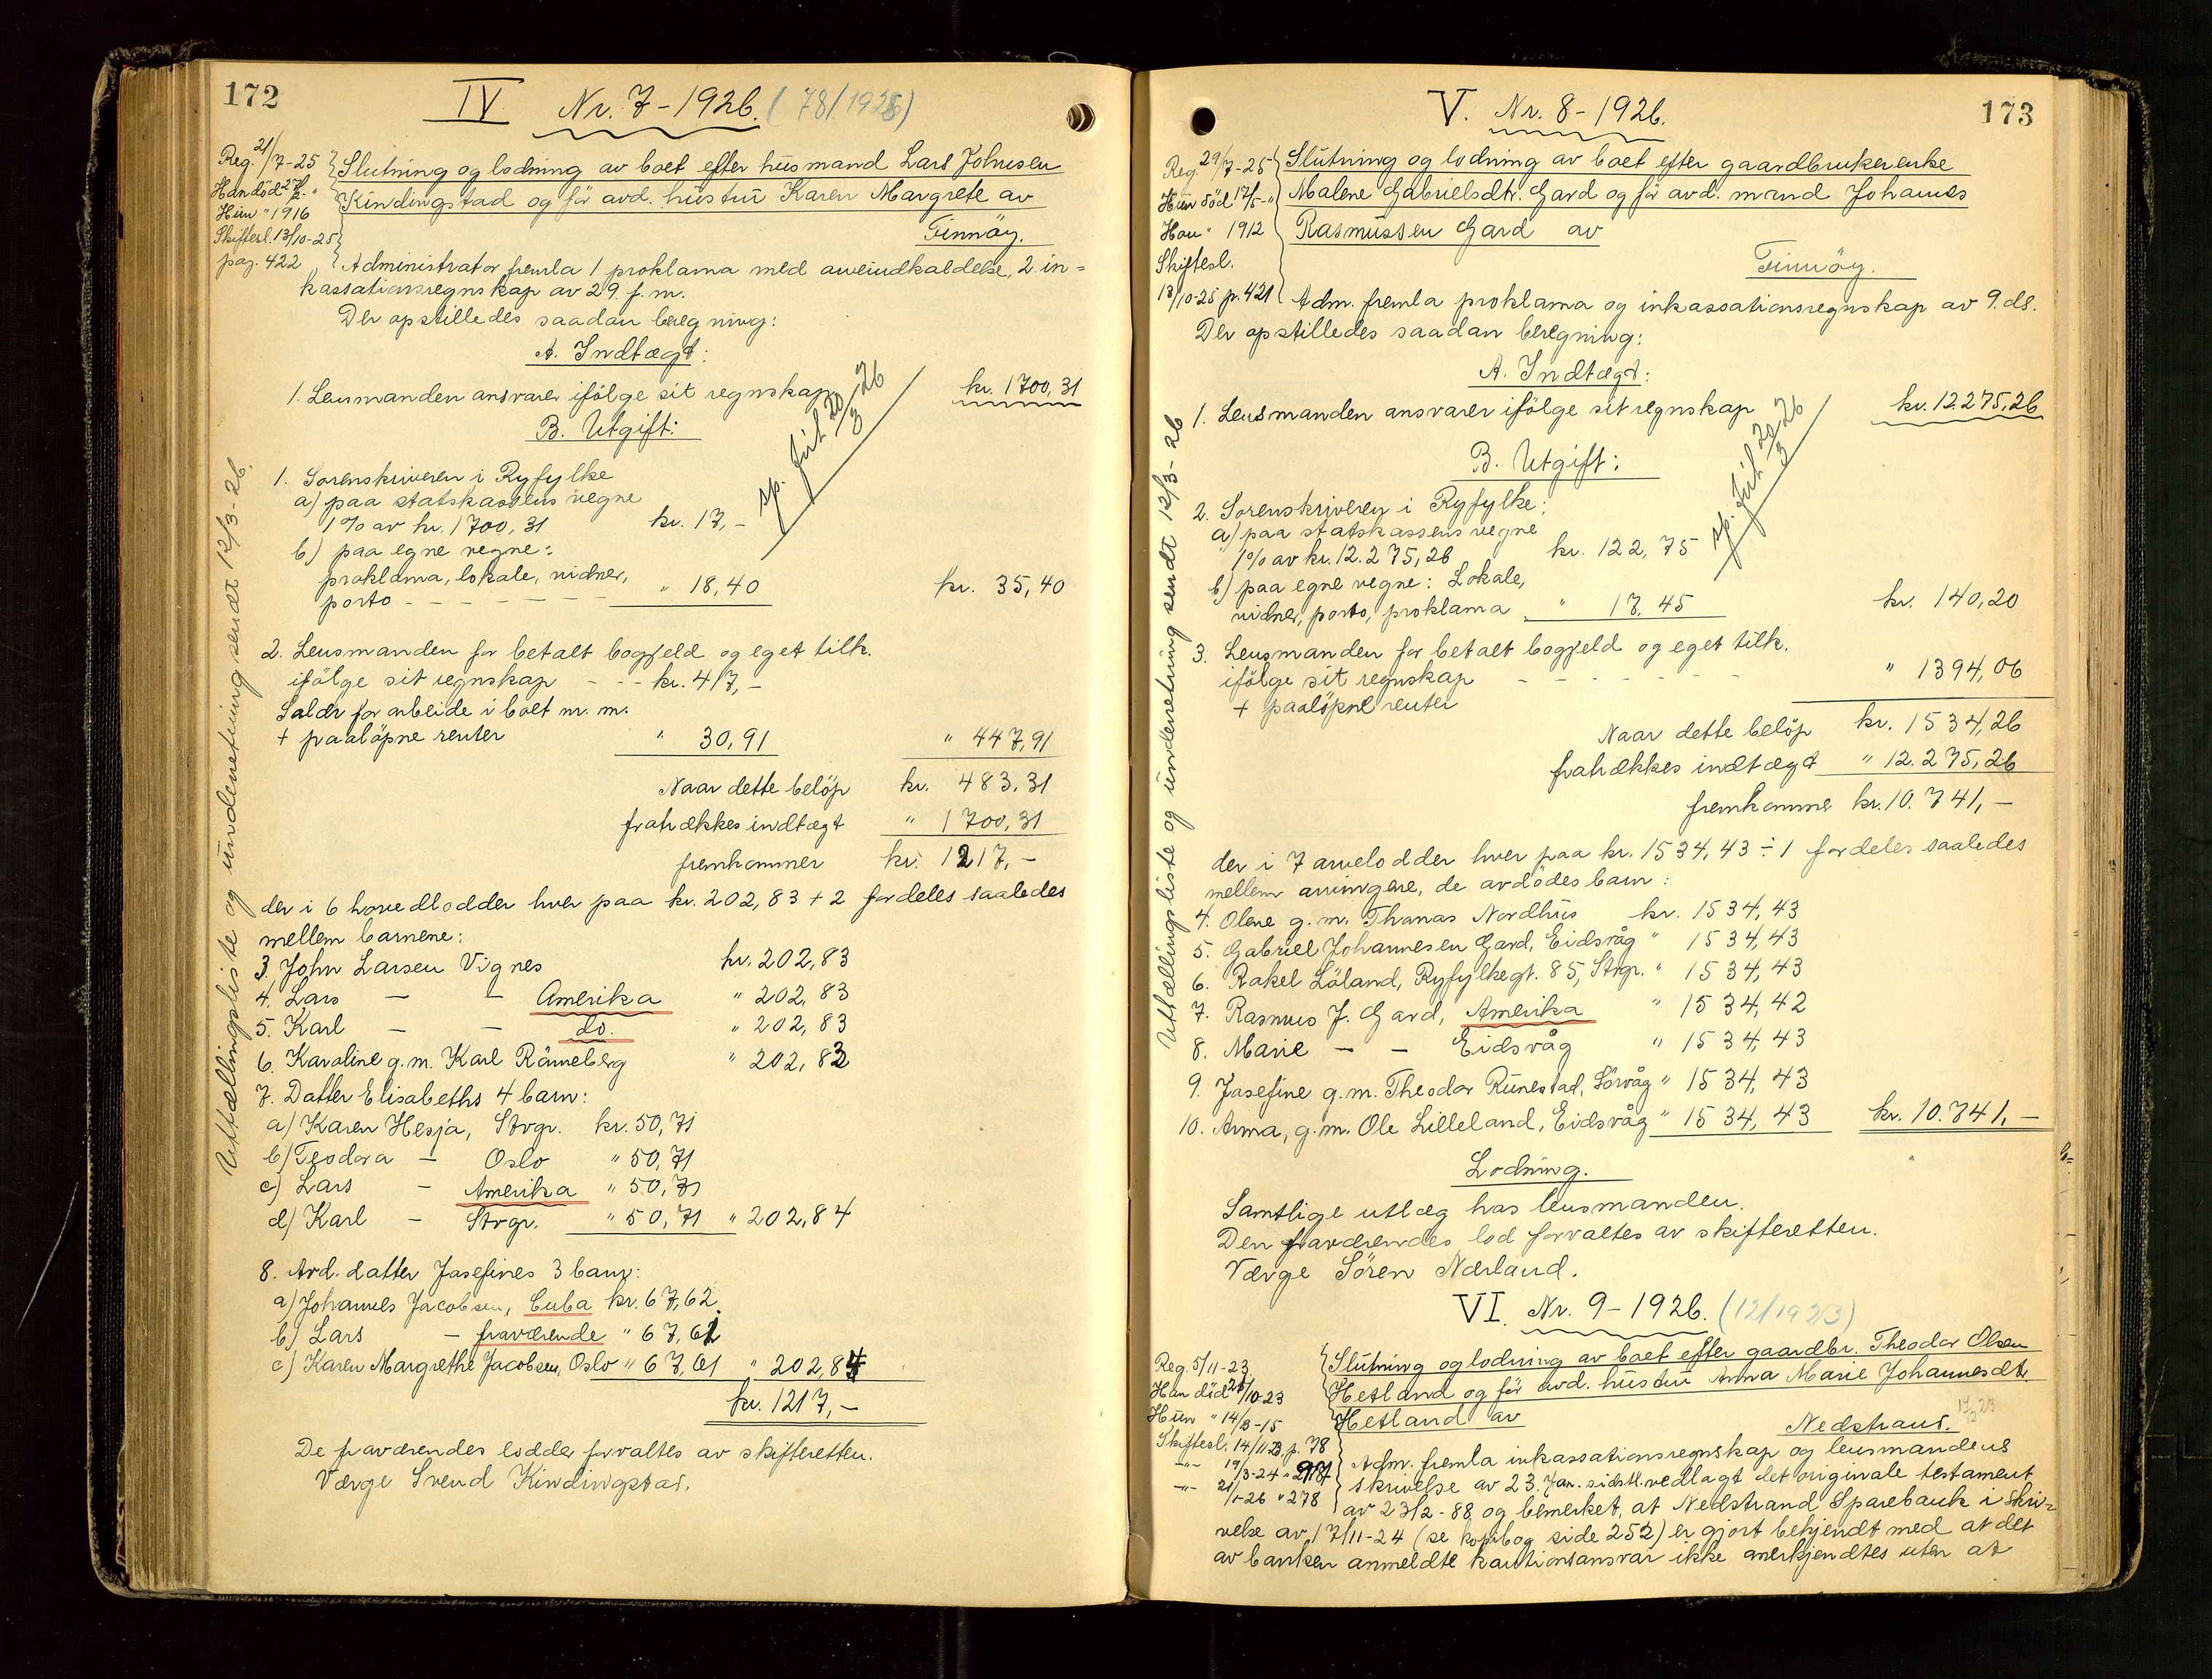 172
IV Nr. 7 - 1926. (78/1925)
Reg. 21/7-25
Han död
Hun " 1916
Skiftesl. 13/10-25
pag. 422
Slutning og lodning av boet efter husmand Lars Johnsen
Kindingstad og før avd. hustru Karen Margrete av
Finnöy.
Administrator fremla 1 proklama med arveindkaldelse, 2 in=
kassationsregnskap av 29. f. m.
Der opstilledes saadan beregning:
A. Indtægt:
1. Lensmanden ansvarer ifölge sit regnskap kr. 1700,31
B. Utgift:
1. Sorenskriveren i Ryfylke
a) paa statskassens vegne
1% av kr. 1700,31 kr. 17,-
b) paa egne vegne:
proklama, lokale, vidner,
porto - - - - - - - " 18,40 kr. 35,40
2. Lensmanden for betalt bogjeld og eget tilk.
ifölge sit regnskap - - - kr. 417,-
Saldr for arbeide i boet m. m.
+ paalöpne renter " 30,91 " 447,91
Naar dette belöp kr. 483,31
fratrækkes indtægt " 1700,31
fremkommer kr. 1217,-
der i 6 hovedlodder hver paa kr. 202,83 + 2 fordeles saaledes
mellem barnene:
3. John Larsen Vignes kr. 202,83
4. Lars - - Amerika " 202,83
5. Karl - - do. " 202,83
6. Karoline g. m. Karl Rämeberg " 202,83
7. Datter Elisabeths 4 barn:
a) Karen Hesja, Stvgr. kr. 50,71
b) Teodora - Oslo " 50,71
c) Lars - Amerika " 50,71
d) Karl - Stvgr. " 50,71 " 202,84
8. Avd. datter Josefines 3 barn:
a) Johannes Jacobsen, Cuba kr. 67,62
b) Lars - fraværende " 67,61
c) Karen Margrethe Jacobsen, Oslo " 67,61 " 202,84
kr. 1217,-
De fraværendes lodder forvaltes av skifteretten.
Værge Svend Kindingstad.
Uttællingsliste og underretning sendt 12/3-26.
sp. ført 20/3 - 26
173
V. Nr. 8 - 1926.
Reg. 29/7-25
Hun död 17/5-"
Han " 1912
Skiftesl.
13/10-25 p. 421
Slutning og lodning av boet efter gaardbrukerenke
Malene Gabrielsdtr. Gard og før avd. mand Johannes
Rasmussen Gard av
Finnöy.
Adm. fremla proklama og inkassationsregnskap av 9. ds.
Der opstilledes saadan beregning:
A. Indtægt:
1. Lensmanden ansvarer ifölge sit regnskap kr. 12.275,26
B. Utgift:
2. Sorenskriveren i Ryfylke:
a) paa statskassens vegne
1% av kr. 12.275,26 kr. 122,75
b) paa egne vegne: Lokale,
vidner, porto, proklama " 17.45 kr. 140,20
3. Lensmanden for betalt bogjeld og eget tilk.
ifölge sit regnskap - - - - - - " 1394,06
+ paalöpne renter
Naar dette belöp kr. 1534,26
fratrækkes indtægt " 12.275,26
fremkommer kr. 10.741,-
der i 7 arvelodder hver paa kr. 1534,43 ÷ 1 fordeles saaledes
mellem arvingene, de avdödes barn:
4. Olene g. m. Thomas Nordhus kr. 1534,43
5. Gabriel Johannesen Gard, Eidsvåg " 1534,43
6. Rakel Löland, Ryfylkegt. 85, Stvgr. " 1534,43
7. Rasmus J. Gard, Amerika " 1534,42
8. Marie - - Eidsvåg " 1534,43
9. Josefine g. m. Theodor Runestad, Sörvåg " 1534,43
10. Anna, g. m. Ole Lilleland, Eidsvåg " 1534,43 kr. 10.741,-
Lodning.
Samtlige utlæg hos lensmanden.
Den fraværendes lod forvaltes av skifteretten.
Værge Sören Nærland.
Uttællingsliste og underretning sendt 12/3-26
sp. ført 20/3 26
VI. Nr. 9 - 1926. (12/1923)
Reg. 5/11-23
Han död /10-23
Hun " 14/8-15
Skiftesl. 14/11 23 p. 78
-"- 19/3-24 "
-"- 21/1-26 " 278
Slutning og lodning av boet efter gaardbr. Theodor Olsen
Hetland og før avd. hustru Anna Marie Johannesdtr.
Hetland av
Nedstrand.
Adm. fremla inkassationsregnskap og lensmandens
skrivelse av 23. Jan. sidstl. vedlagt det originale testament
av 23/2-88 og bemerket, at Nedstrand Sparebank i skri=
velse av 17/11-24 (se kopibog side 252) er gjort bekjendt med at det
av banken anmeldte kautionsansvar ikke anerkjendtes uten at